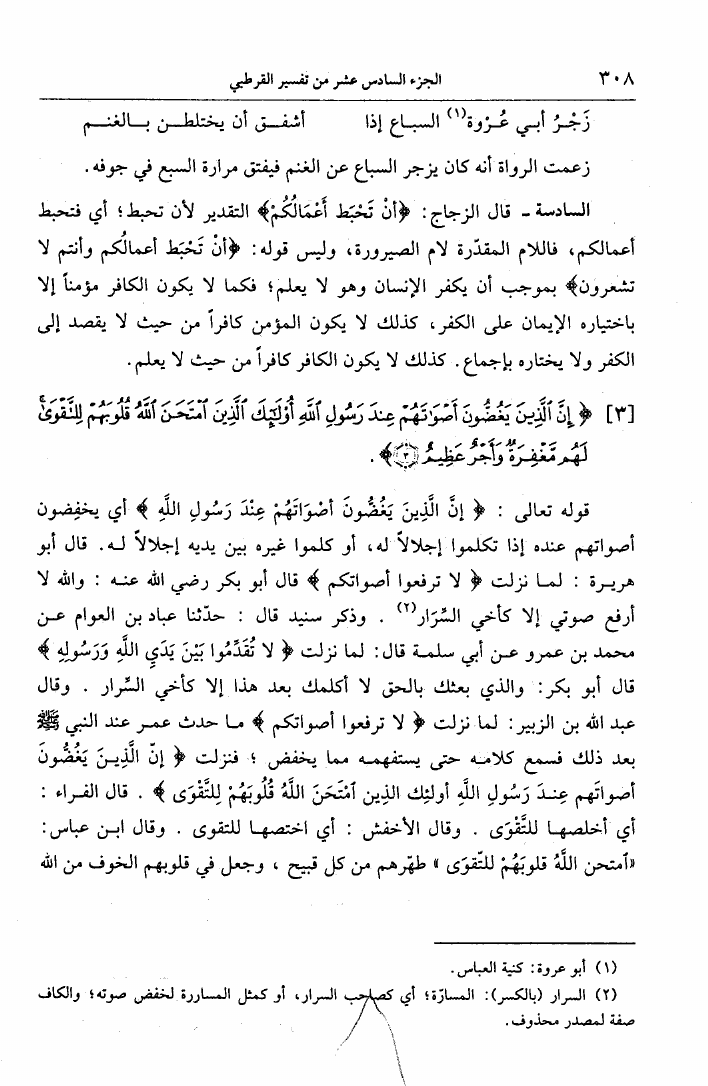 ٣٠٨ الجزء السادس عشر من تفسير القرطبي
زَجْرُ أبـي عُـرْوة(١) السبـاع إذا أشفـق أن يختلطـن بـالغنـم
زعمت الرواة أنه كان يزجر السباع عن الغنم فيفتق مرارة السبع في جوفه.
السادسة ـ قال الزجاج: ﴿أَنْ تَحْبَط أَعْمَالُكُمْ﴾ التقدير لأن تحبط؛ أي فتحبط
أعمالكم، فاللام المقدّرة لام الصيرورة، وليس قوله: ﴿أَنْ تَحْبَط أعمالُكم وأنتم لا
تشعرون﴾ بموجب أن يكفر الإنسان وهو لا يعلم؛ فكما لا يكون الكافر مؤمناً إلا
باختياره الإيمان على الكفر، كذلك لا يكون المؤمن كافراً من حيث لا يقصد إلى
الكفر ولا يختاره بإجماع. كذلك لا يكون الكافر كافراً من حيث لا يعلم.
[٣] ﴿ إِنَّ ٱلَّذِينَ يَغُضُّونَ أَصْوَٰتَهُمْ عِندَ رَسُولِ ٱللَّهِ أُو۟لَٰٓئِكَ ٱلَّذِينَ ٱمْتَحَنَ ٱللَّهُ قُلُوبَهُمْ لِلتَّقْوَىٰۚ
لَهُم مَّغْفِرَةٌ وَأَجْرٌ عَظِيمٌ ٣﴾.
قوله تعالى : ﴿ إِنَّ الَّذِينَ يَغُضُّونَ أَصْوَاتَهُمْ عِنْدَ رَسُولِ اللَّهِ ﴾ أي يخفضون
أصواتهم عنده إذا تكلموا إجلالاً له، أو كلموا غيره بين يديه إجلالاً لـه. قال أبو
هريـرة : لمـا نزلت ﴿ لا ترفعوا أصواتكم ﴾ قال أبو بكر رضي الله عنـه : والله لا
أرفع صوتي إلا كأخي السِّرَار(٢) . وذكر سنيد قال : حدّثنا عباد بن العوام عـن
محمد بن عمرو عـن أبي سلمـة قال: لما نزلت ﴿ لا تُقَدِّمُوا بَيْنَ يَدَيِ اللَّهِ وَرَسُولِهِ ﴾
قال أبو بكر: والذي بعثك بالحق لا أكلمك بعد هذا إلا كأخي السِّرار . وقال
عبد الله بن الزبير: لما نزلت ﴿ لا ترفعوا أصواتكم ﴾ مـا حدث عمـر عند النبي ﷺ
بعد ذلك فسمع كلامـه حتى يستفهمـه مما يخفض ؛ فنزلت ﴿ إنّ الَّذِيـنَ يَغُضُّونَ
أصواتَهم عِنـدَ رَسُولِ اللَّهِ أولئِك الذين ٱمْتَحَنَ اللَّهُ قُلُوبَهُمْ لِلتَّقْوَى ﴾ . قال الفـراء :
أي أخلصهـا للتَّقْوَى . وقال الأخفش : أي اختصهـا للتقوى . وقال ابـن عباس:
«ٱمتحن اللَّهُ قلوبَهُمْ للتّقوَى » طهّرهم من كل قبيح ، وجعل في قلوبهم الخوف من الله
(١) أبو عروة: كنية العباس.
(٢) السرار (بالكسر): المسارّة؛ أي كصاحب السرار، أو كمثل المساررة لخفض صوته؛ والكاف
صفة لمصدر محذوف.